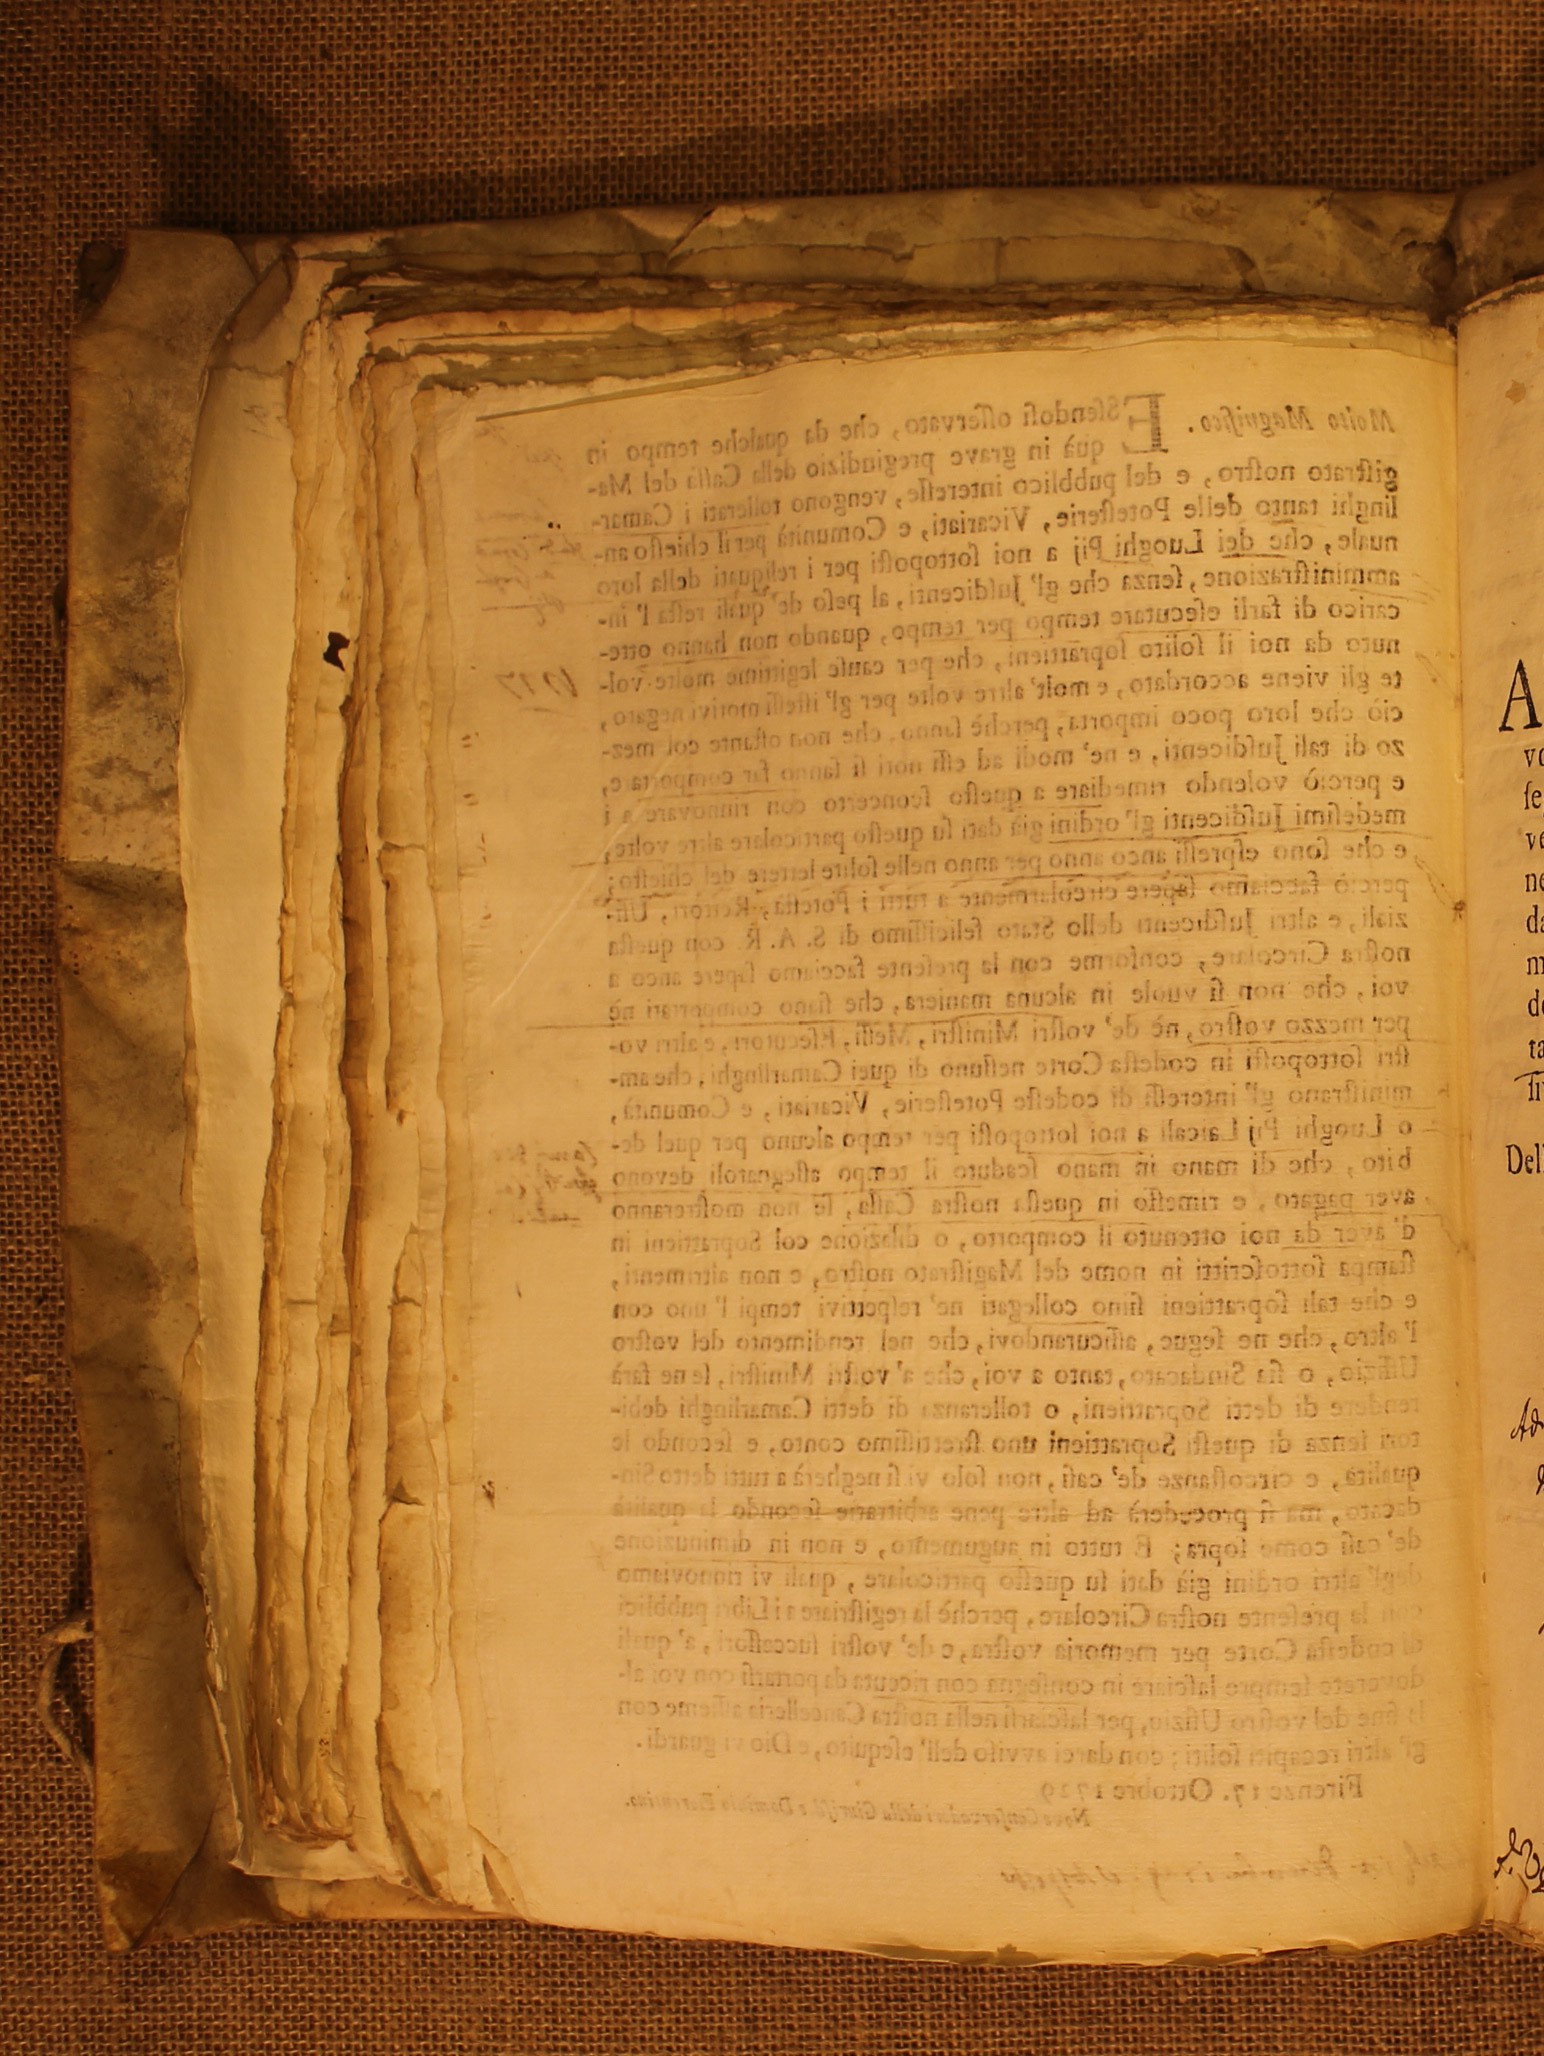 Molto Magnifico.
ESsendosi osservato, che da qualche tempo in
quà in grave pregiudizio della Cassa del Ma-
gistrato nostro, e del pubblico interesse, vengono tollerati i Camar-
linghi tanto delle Potesterie, Vicariati, e Comunità per il chiesto an-
nuale, che dei Luoghi Pij a noi sottoposti per i reliquati della loro
amministrazione, senza che gl' Jusdicenti, al peso de' quali resta l' in-
carico di farli esecutare tempo per tempo, quando non hanno otte-
nuto da noi il solito soprattieni, che per cause legittime molte vol-
te gli viene accordato, e molt' altre volte per gl' istessi motivi negato,
ciò che loro poco importa, perchè sanno, che non ostante col mez-
zo di tali Jusdicenti, e ne' modi ad essi noti si fanno far comporta e,
e perciò volendo rimediare a questo sconcerto con rinnovare a i
medesimi Jusdicenti gl' ordini già dati su questo particolare altre volte,
e che sono espressi anco anno per anno nelle solite lettere del chiesto;
perciò facciamo sapere circolarmente a tutti i Potestà, Rettori, Ufi-
ziali, e altri Jusdicenti dello Stato felicissimo di S. A. R. con questa
nostra Circolare, conforme con la presente facciamo sapere anco a
voi, che non si vuole in alcuna maniera, che siano comportati nè
per mezzo vostro, nè de' vostri Ministri, Messi, Esecutori, e altri vo-
stri sottoposti in codesta Corte nessuno di quei Camarlinghi, che am-
ministrano gl' interessi di codeste Potesterie, Vicariati, e Comunità,
o Luoghi Pij Laicali a noi sottoposti per tempo alcuno per quel de-
bito, che di mano in mano scaduto il tempo assegnatoli devono
aver pagato, e rimesso in questa nostra Cassa, se non mostreranno
d' aver da noi ottenuto il comporto, o dilazione col Soprattieni in
stampa sottoscritti in nome del Magistrato nostro, e non altrimenti,
e che tali soprattieni sino collegati ne' respettivi tempi l' uno con
l' altro, che ne segue, assicurandovi, che nel rendimento del vostro
Uffizio, o sia Sindacato, tanto a voi, che a' vostri Ministri, se ne farà
rendere di detti Soprattieni, o tolleranza di detti Camarlinghi debi-
tori senza di questi Soprattieni uno strettissimo conto, e secondo le
qualità, e circostanze de' casi, non solo vi si negherà a tutti detto Sin-
dacato, ma si procederà ad altre pene arbitrarie secondo la qualità
de' casi come sopra; E tutto in augumento, e non in diminuzione
degl' altri ordini già dati su questo particolare, quali vi rinnoviamo
con la presente nostra Circolare, perchè la registriate a i Libri pubblici
di codesta Corte per memoria vostra, e de' vostri successori, a' quali
doverete sempre lasciare in consegna con ricevuta da portarsi con voi al-
la fine del vostro Ufizio, per lasciarsi nella nostra Cancelleria assieme con
gl' altri recapiti soliti; con darci avviso dell' esequito, e Dio vi guardi.
Firenze 17. Ottobre 1729
Nove Conservadori della Giurisd. e Dominio Fiorentino.
1717
A
Dell